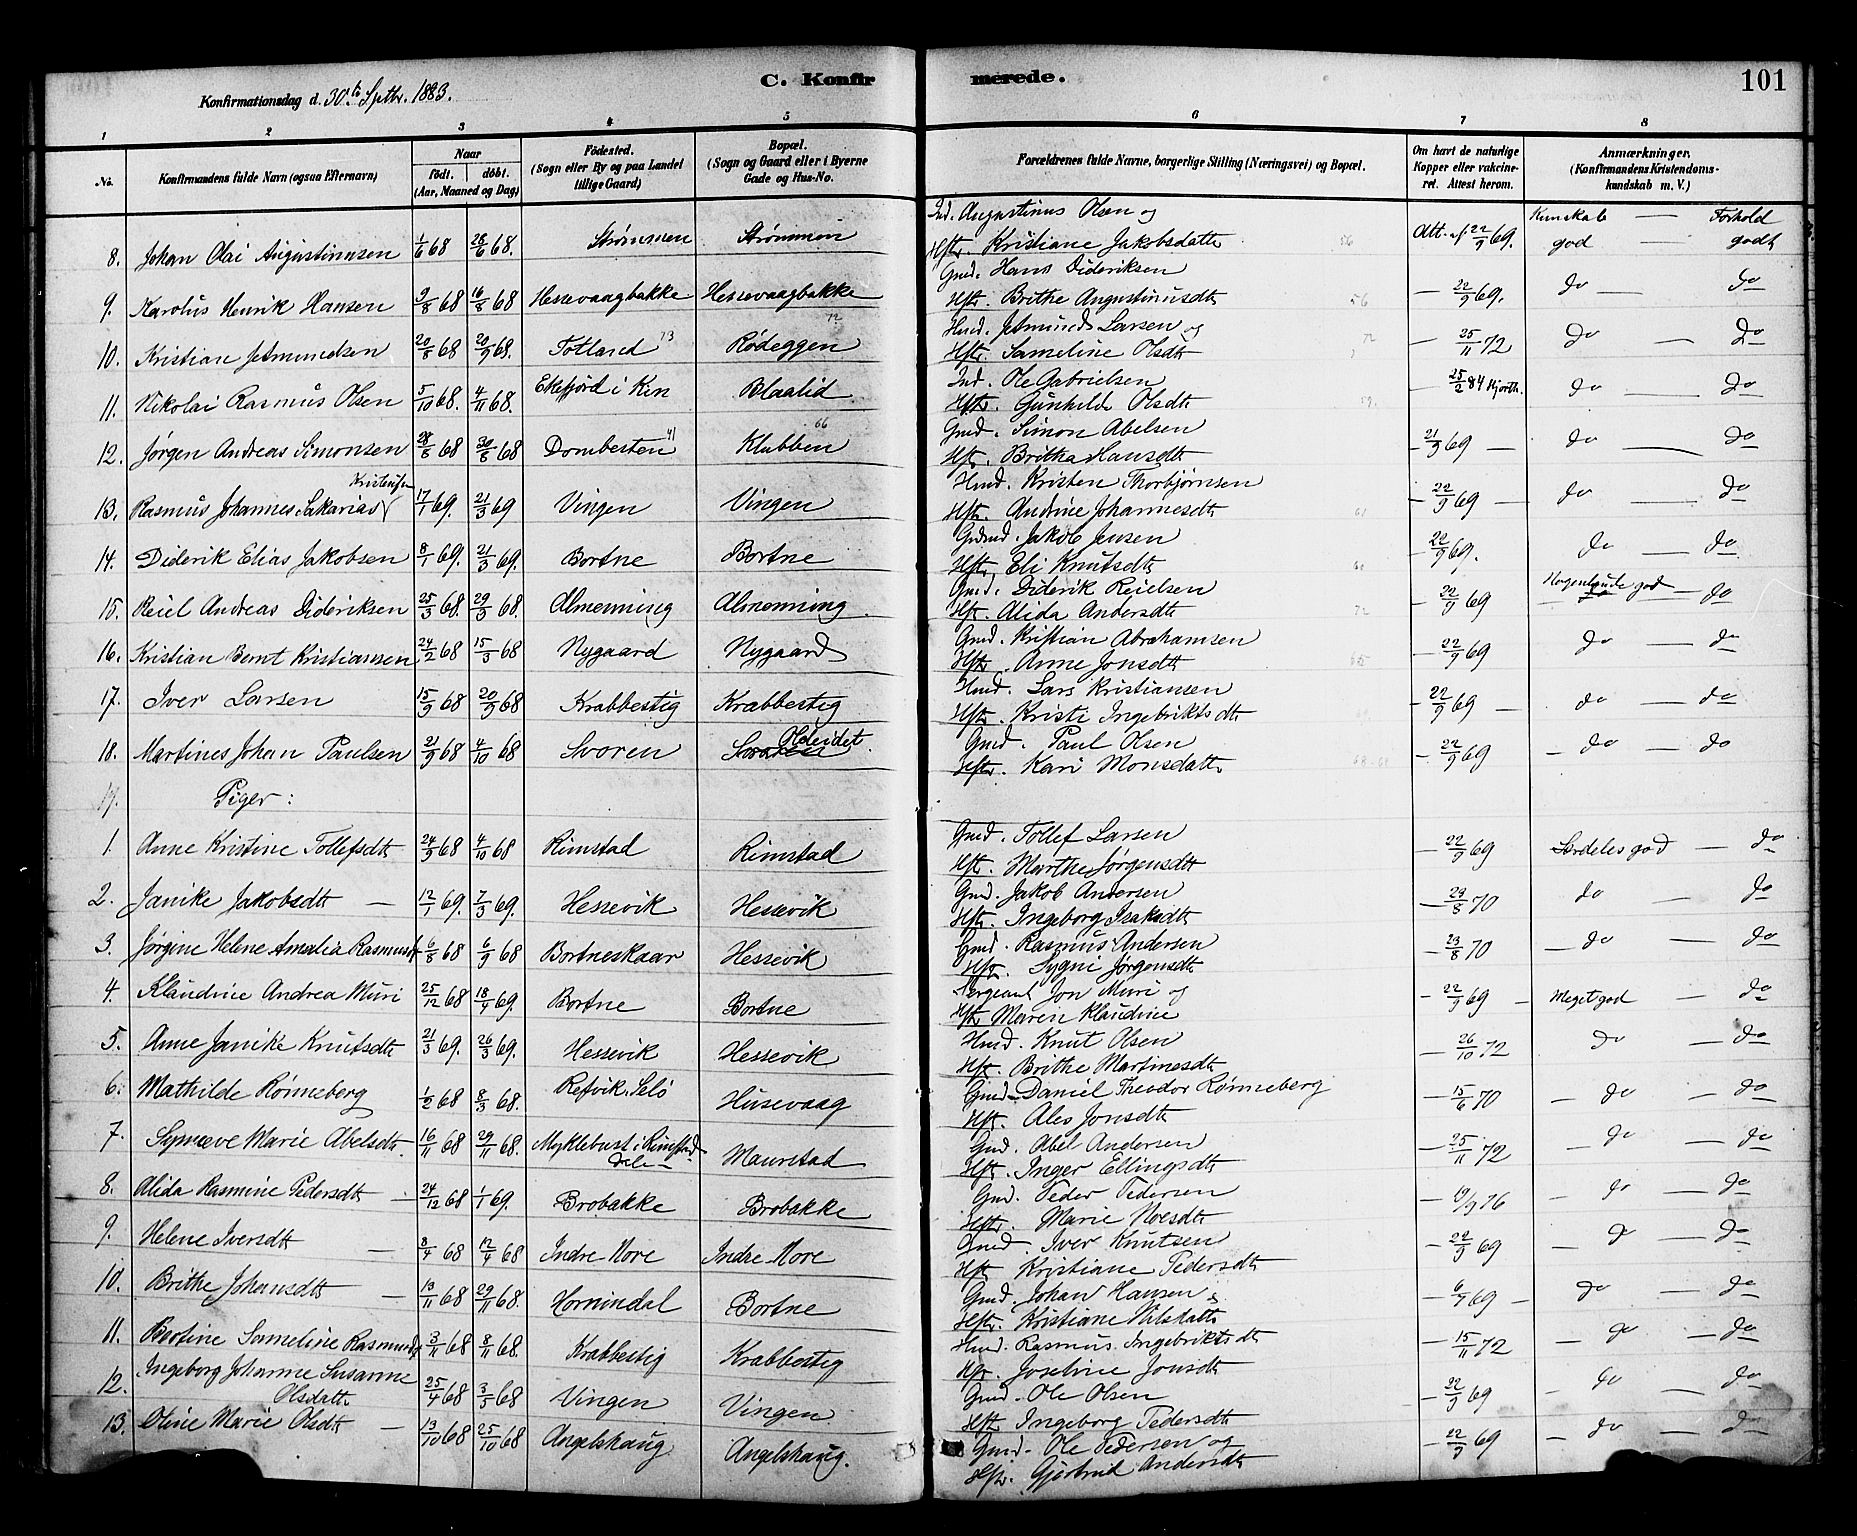 C. Konfirmerede. 101
Konfirmationsdag d. 30te Septbr. 1883.
1 2 3 4 5 6 7 8
No. Konfirmandens fulde Navn (ogsaa Efternavn) Naar født. døbt. (Aar, Maaned og Dag) Fødested. (Sogn eller By og paa Landet tillige Gaard) Bopæl. (Sogn og Gaard eller i Byerne Gade og Hus-No. Forældrenes fulde Navne, borgerlige Stilling (Næringsvei) og Bopæl. Om havt de naturlige Kopper eller vakcineret. Attest herom. Anmærkninger. (Konfirmandens Kristendomskundskab m. V.)
8. Johan Olai Augustinusen 1/6 68 28/6 68. Strømmen Strømmen Ind. Augustinus Olsen og Hstr. Kristiane Jakobsdatt. 56 Att. af 22/9 69. Kunskab god — Forhold godt
9. Karolus Henrik Hansen 9/8 68 16/8 68 Hessevaagbakke Hessevaagbakke Gmd. Hans Dideriksen Hstr. Brithe Augustinusdt. 56 — 22/9 69. do — do
10. Kristian Jetmundsen 20/8 68 20/9 68. Totland 73 Rødeggen 72 Hmd. Jetmund Larsen og Hstr. Sameline Olsdt. 72 — 25/11 72 do — do
11. Nikolai Rasmus Olsen 5/10 68. 4/11 68. Ekefjord i Kin Blaalid Ind. Ole Gabrielsen Hstr. Gunhilde Olsdt. 59. — 25/2 84 Hjorth. do — do
12. Jørgen Andreas Simonsen 28/8 68 30/8 68 Dombesten 41 Klubben 66 Gmd. Simon Abelsen Hstr. Britha Hansdt. 21/9 69 — do — do
13. Rasmus Johannes Sakarias Kristensen 17/1 69. 21/3 69 Vingen Vingen Hmd. Kristen Thorbjørnsen Hstr. Andrine Johannesdt. 61 — 22/9 69 — do — do
14. Diderik Elias Jakobsen 8/1 69. 21/3 69. Bortne Bortne Gmd. Jakob Jensen Hstr. Eli Knutsdt. — 22/9 69. do — do
15. Reiel Andreas Dideriksen 25/3 68. 29/3 68. Almenning Almenning. Gmd. Diderik Reielsen Hstr. Alida Andersdt. 72 — 22/9 69 Nogenlunde god — do
16. Kristian Bernt Kristiansen 24/2 68 15/3 68 Nygaard Nygaard Gmd. Kristian Abrahamsen Hstr. Anne Jonsdt. — 22/9 69 do — do
17. Iver Larsen 15/9 68 20/9 68 Krabbestig Krabbestig Hmd. Lars Kristiansen Hstr. Kristi Ingebriktsdt. — 22/9 69 — do — do
18. Martines Johan Paulsen 21/9 68 4/10 68 Svoren Oldeidet. Gmd. Paul Olsen Hstr. Kari Monsdatt. 68-68 — 22/9 69 — do — do
19. Piger:
1. Anne Kristine Tollefsdt. 24/9 68 4/10 68 Rimstad Rimstad Gmd. Tollef Larsen Hstr. Marthe Jørgensdt. — 22/9 69 Særdeles god — do
2. Janike Jakobsdt. — 12/1 69. 7/3 69. Hessevik Hessevik Gmd. Jakob Andersen Hstr. Ingeborg Isaksdt. — 29/8 70 do — do
3. Jørgine Helene Amalia Rasmusdt. 6/8 68 6/9 68 Bortneskaar Hessevik Gmd. Rasmus Andersen Hstr. Sygni Jørgensdt. — 23/8 70 — do — do
4. Klaudine Andrea Muri 25/12 68 18/4 69. Bortne Bortne Sergeant Jon Muri og Hstr. Maren Klaudine — 22/9 69 — Meget god — do
5. Anne Janike Knutsdt. 21/3 69. 26/3 69. Hessevik Hessevik Hmd. Knut Olsen Hstr. Brithe Martinesdt. — 26/10 72 do — do
6. Mathilde Rønneberg 1/2 68 8/3 68. Refvik. Selø Husevaag Gmd. Daniel Theodor Rønneberg Hstr. Ales Jonsdt. — 15/6 70 — do — do
7. Synneve Marie Abelsdt. 16/11 68 29/11 68. Myklebust i Rimstad Maurstad Gmd. Abel Andersen Hstr. Inger Ellingsdt. — 25/11 72 — do — do
8. Alida Rasmine Pedersdt. — 24/12 68 1/1 69. Brobakke Brobakke Gmd. Peder Pedersen Hstr. Marie Noesdt. — 19/9 76 — do — do
9. Helene Iversdt. — 8/4 68 12/4 68 Indre Nore Indre Nore Gmd. Iver Knutsen Hstr. Kristiane Pedersdt. — 22/9 69 — do — do
10. Brithe Johansdt. — 13/11 68 29/11 68. Hornindal Bortne Gmd. Johan Hansen & Hstr. Kristiane Nilsdatt. — 6/9 69 — do — do
11. Bertine Sameline Rasmusdt. 3/11 68 8/11 68. Krabbestig Krabbestig Hmd. Rasmus Ingebriktsdt. Hstr. Joseline Jonsdt. — 15/11 72 — do — do
12. Ingeborg Johanne Susanne Olsdatt. 25/4 68 3/5 68 Vingen Vingen Gmd. Ole Olsen Hstr. Ingeborg Pedersdt. — 22/9 69 — do — do
13. Oline Marie Olsdt. — 13/10 68 25/10 68 Angelshaug Angelshaug. Gmd. Ole Pedersen og Hstr. Gjertrud Andersdt. — 22/9 69 — do — do